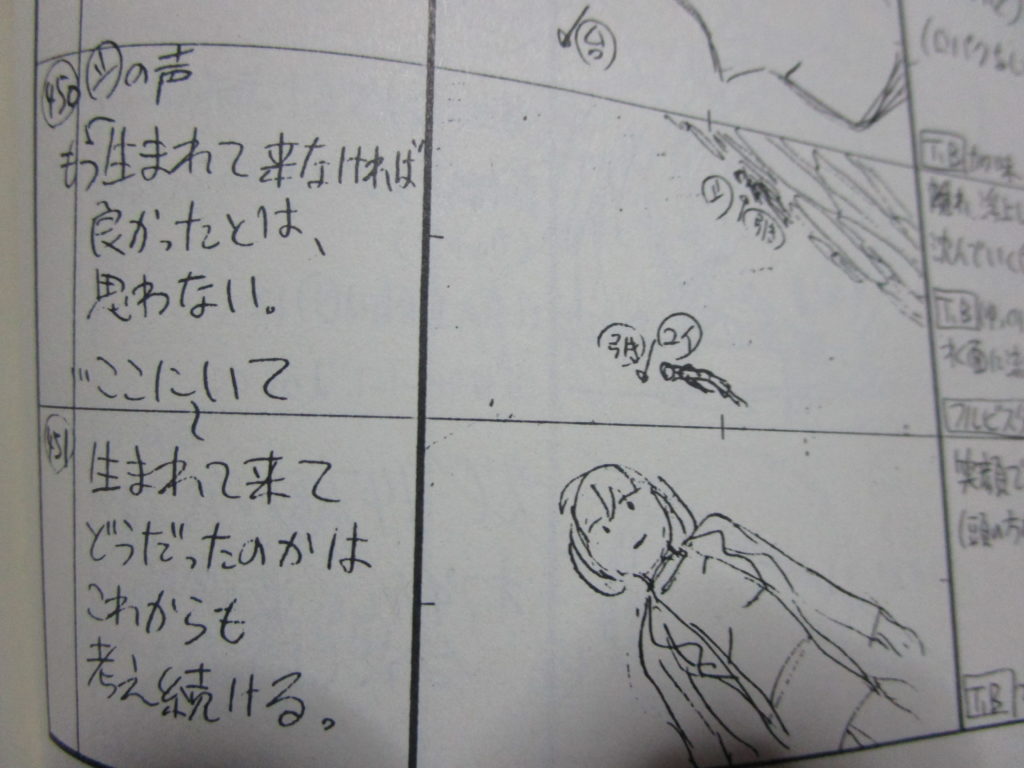 合
(口パクなし
450
ツの声
「もう生まれて来なければ
良かったとは、
思わない。
ツ
引き
T.B
離れ
沈んでいく
T.B
水面に
引き
コイ
ここにいて
451
生まれて来て
どうだったのかは
これからも
考え続ける。
笑顔で
(頭の方
T.B